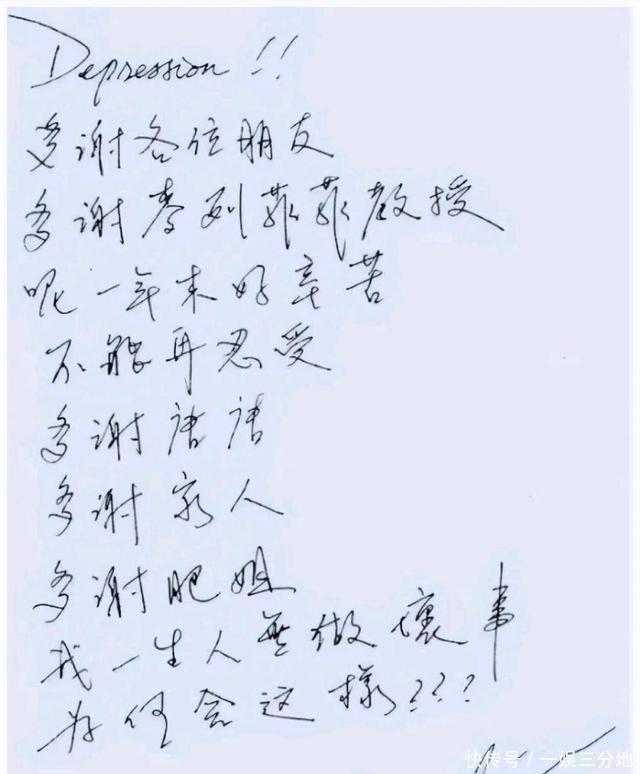 Depression!!
多謝各位朋友
多謝麥列菲菲教授
呢一年來好辛苦
不能再忍受
多謝唐唐
多謝家人
多謝肥姐
我一生人無做壞事
為何會這樣???
快传号 / 一娱三分地